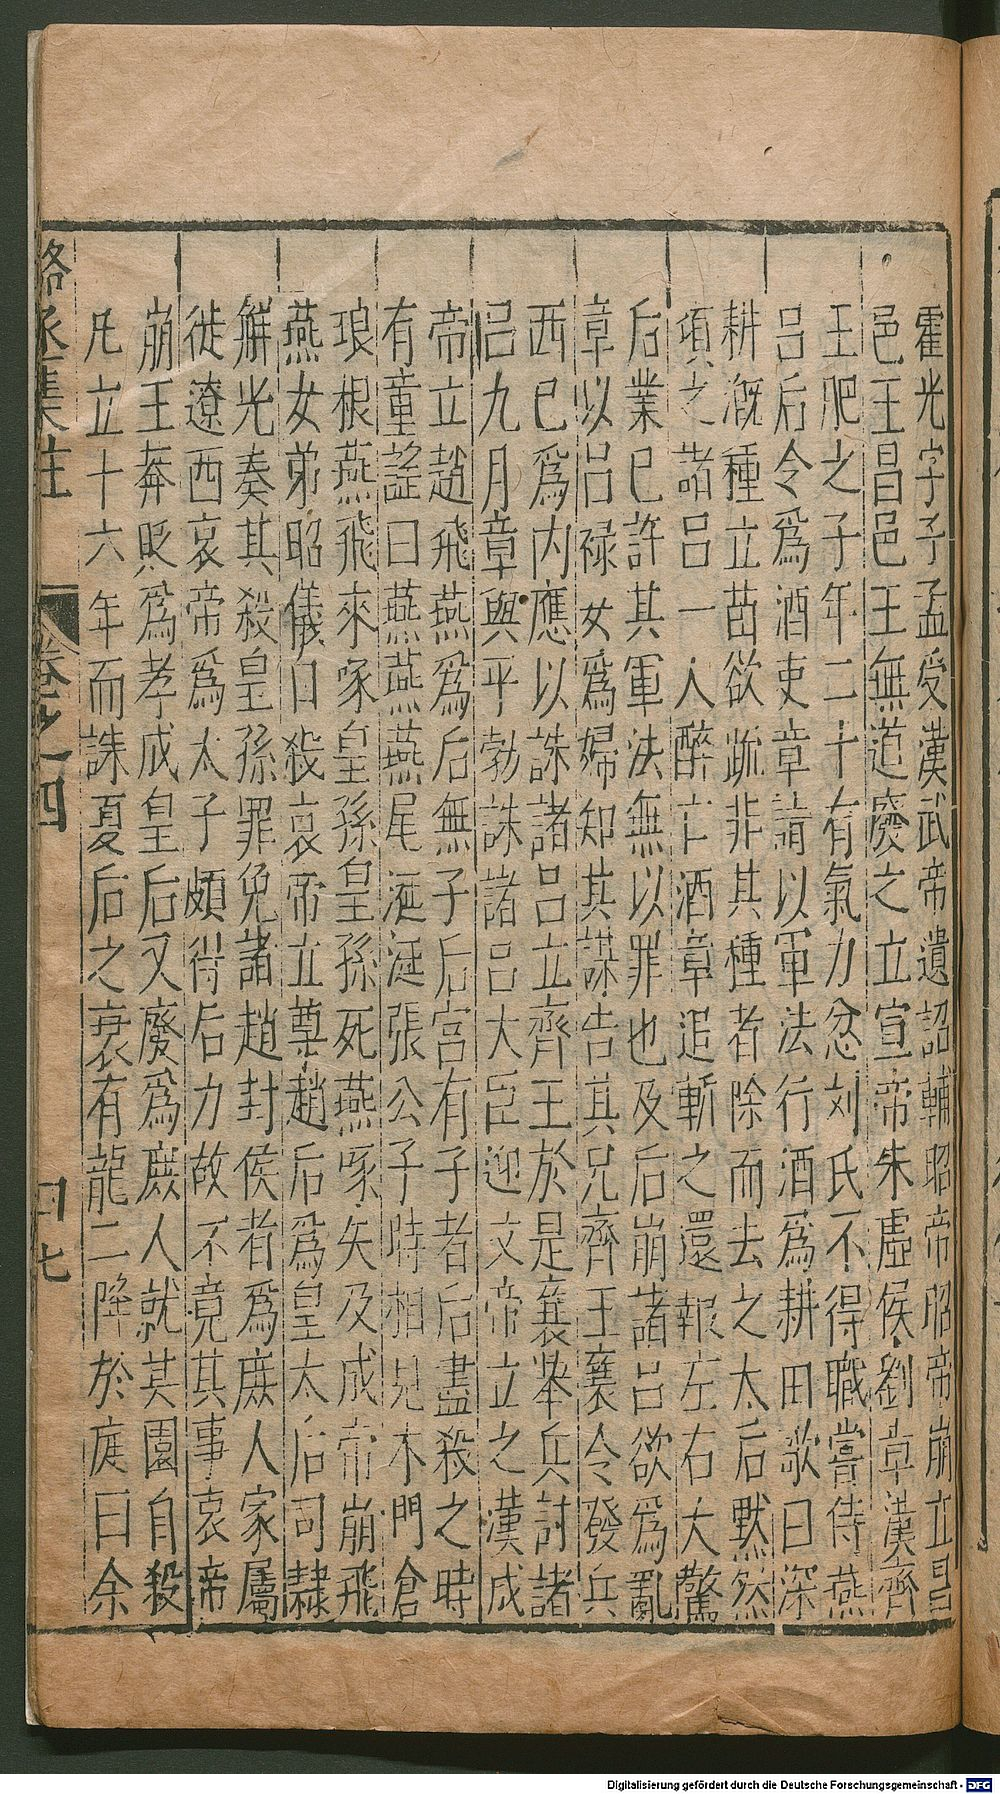 霍光字子孟受漢武帝遺詔輔昭帝昭帝崩立昌
邑王昌邑王無道廢之立宣帝朱虛侯劉章漢齊
王肥之子年二十有氣力忿刘氏不得職嘗侍燕
吕后令爲酒吏章請以軍法行酒爲耕田歌曰深
耕溉種立苗欲疏非其種者除而去之太后默然
頃之諸吕一人醉亡酒章追斬之還報左右大驚
后業已許其軍法無以罪也及后崩諸吕欲爲亂
章以吕祿女爲婦知其謀告其兄齊王襄令發兵
西已爲内應以誅諸吕立齊王於是襄举兵討諸
吕九月章與平勃誅諸吕大臣迎文帝立之漢成
帝立趙飛燕爲后無子后宮有子者后盡殺之時
有童謠曰燕燕燕尾涎涎張公子時相見木門倉
琅根燕飛來啄皇孫皇孫死燕啄矢及成帝崩飛
燕女弟昭儀自殺哀帝立尊趙后爲皇太后司隸
解光奏其殺皇孫罪免諸趙封侯者爲庶人家屬
徙遼西哀帝爲太子頗得后力故不竟其事哀帝
崩王莽貶爲孝成皇后又廢爲庶人就其園自殺
凡立十六年而誅夏后之衰有龍二降於庭曰余
駱丞集註 卷之四 四七
Digitalisierung gefördert durch die Deutsche Forschungsgemeinschaft - DFG